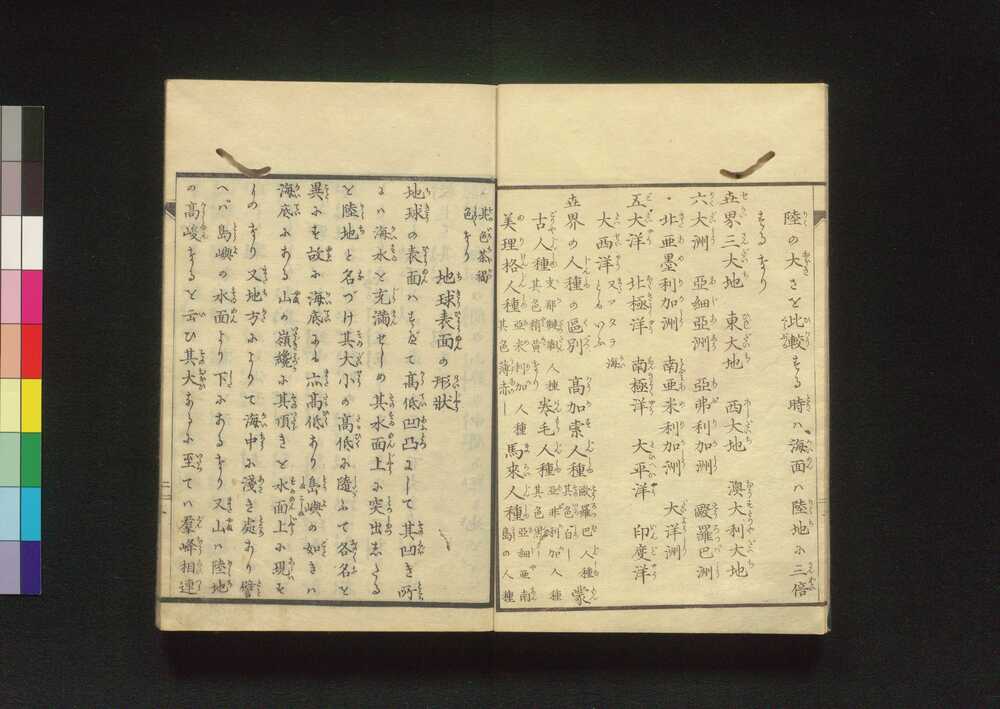 陸の大きさを比較する時ハ海面ハ陸地に三倍
するなり
世界三大地　東大地　西大地　澳大利大地
六大洲　亞細亞洲　亞弗利加洲　歐羅巴洲
北亞墨利加洲　南亞米利加洲　大洋洲
五大洋　北極洋　南極洋　大平洋　印度洋
大西洋　又大洋ヲ海ともいふ
世界の人種の區別　高加索人種 歐羅巴人種其色白し 蒙
古人種 支那韃靼人種其色稍黄なり 卷毛人種 亞非利加人種其色黒し
美理格人種 亞米利加人種其色薄赤し 馬來人種 亞細亞南島の人種
其色茶褐色なり
地球表面の形狀
地球の表面ハすべて高低凹凸にして其凹き所
にハ海水を充滿せしめ其水面上に突出したる
を陸地と名づけ其大小の高低に隨ふて各名を
異にす故に海底にも亦高低あり島嶼の如きハ
海底にある山の嶺纔に其頂きを水面上に現す
ものなり又地方によりて海中に淺き處あり譬
へバ島嶼の水面より下にあるなり又山ハ陸地
の高峻なるを云ひ其大なるに至てハ羣峰相連